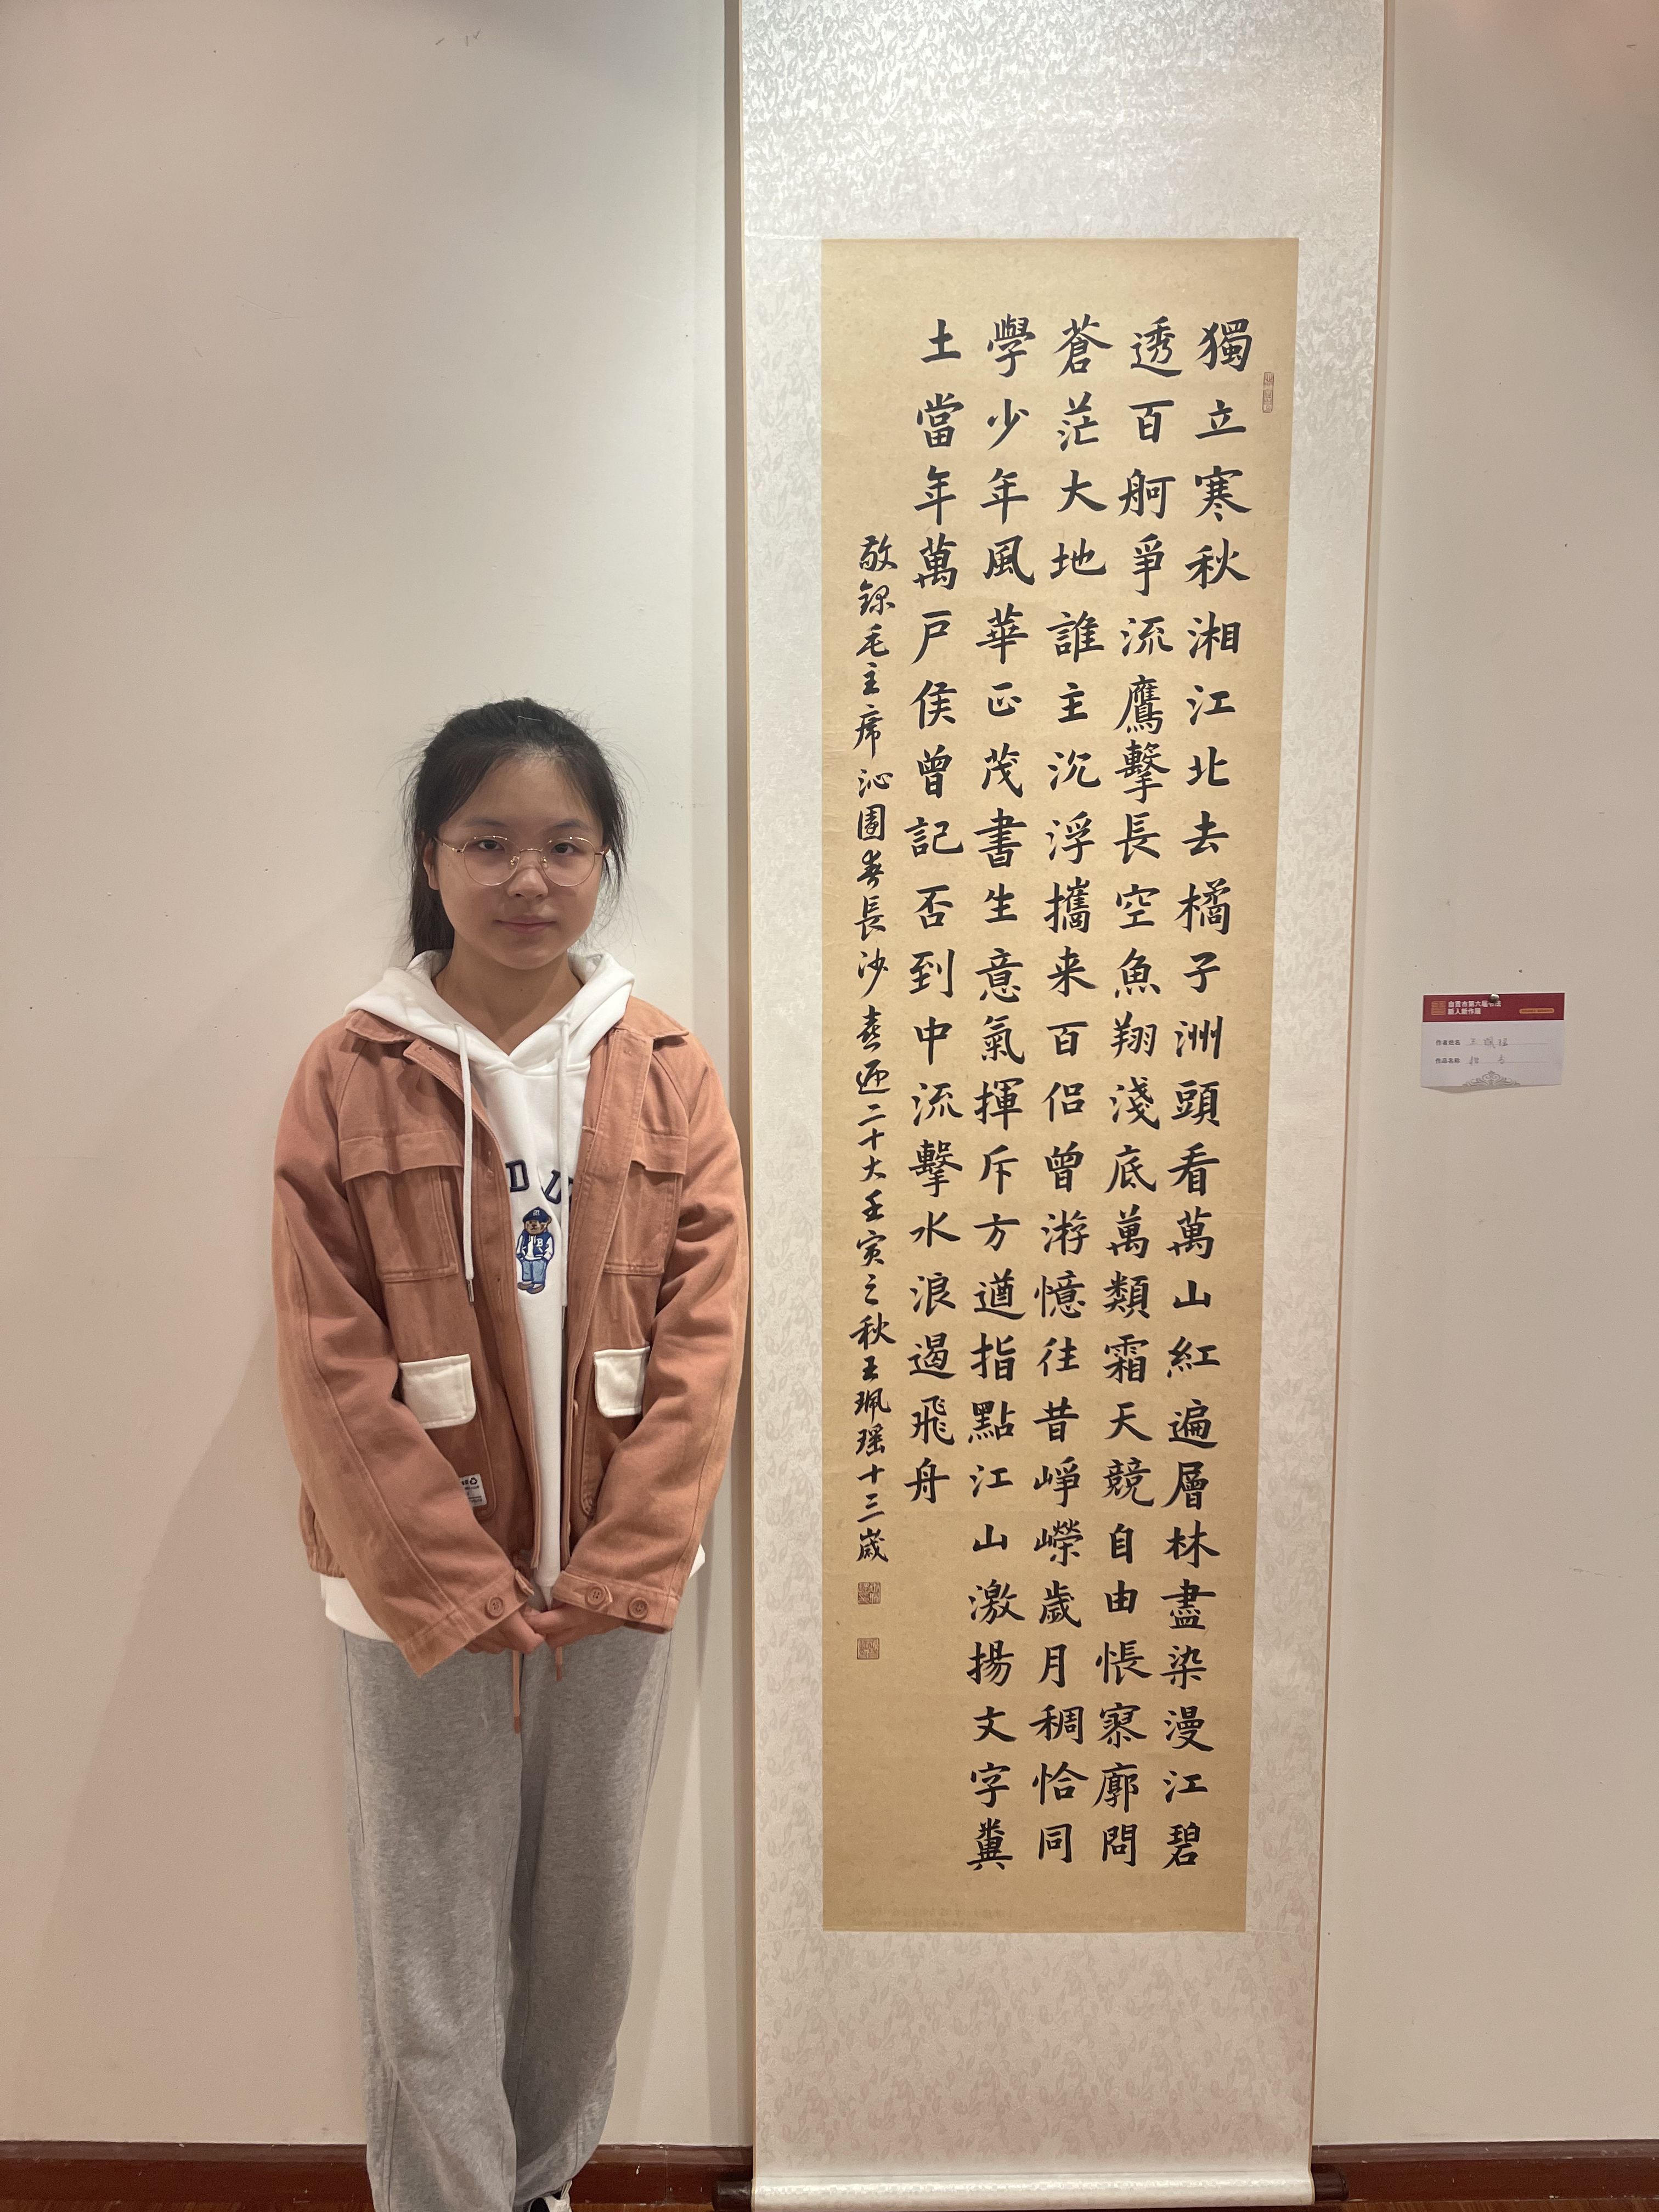 獨立寒秋湘江北去橘子洲頭看萬山紅遍層林盡染漫江碧
透百舸爭流鷹擊長空魚翔淺底萬類霜天競自由悵寥廓問
蒼茫大地誰主沉浮攜来百侣曾游憶往昔崢嶸歲月稠恰同
學少年風華正茂書生意氣揮斥方遒指點江山激揚文字糞
土當年萬戶侯曾記否到中流擊水浪遏飛舟
敬録毛主席沁園春長沙喜迎二十大壬寅之秋王珮瑶十三歲
自贡市第六届书法
新人新作展
作者姓名 王珮瑶
作品名称